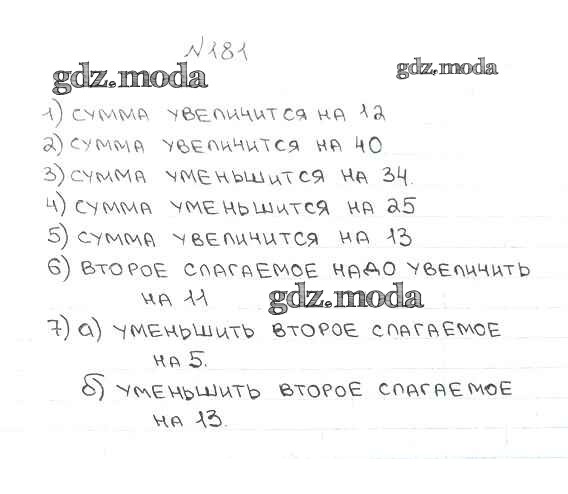 №181
gdz.moda gdz.moda
1) СУММА УВЕЛИЧИТСЯ НА 12
2) СУММА УВЕЛИЧИТСЯ НА 40
3) СУММА УМЕНЬШИТСЯ НА 34.
4) СУММА УМЕНЬШИТСЯ НА 25
5) СУММА УВЕЛИЧИТСЯ НА 13
6) ВТОРОЕ СЛАГАЕМОЕ НАДО УВЕЛИЧИТЬ
НА 11 gdz.moda
7) а) УМЕНЬШИТЬ ВТОРОЕ СЛАГАЕМОЕ
НА 5.
б) УМЕНЬШИТЬ ВТОРОЕ СЛАГАЕМОЕ
НА 13.